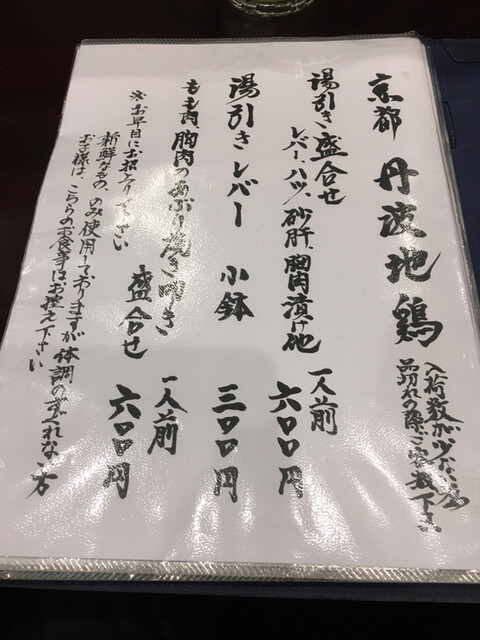 京都 丹波地鶏
入荷数が少ない為
品切れの際ご容赦下さい
湯引き盛合せ 一人前
レバー、ハツ、砂肝、胸肉漬け他 六〇〇円
湯引きレバー 小鉢 三〇〇円
もも肉、胸肉のあぶり焼き叩き
盛合せ 一人前 六〇〇円
※お早目にお招ゟ下さい
新鮮なもの、のみ使用しておりますが体調のすぐれない方
お子様は、こちらのお食事はお控え下さい